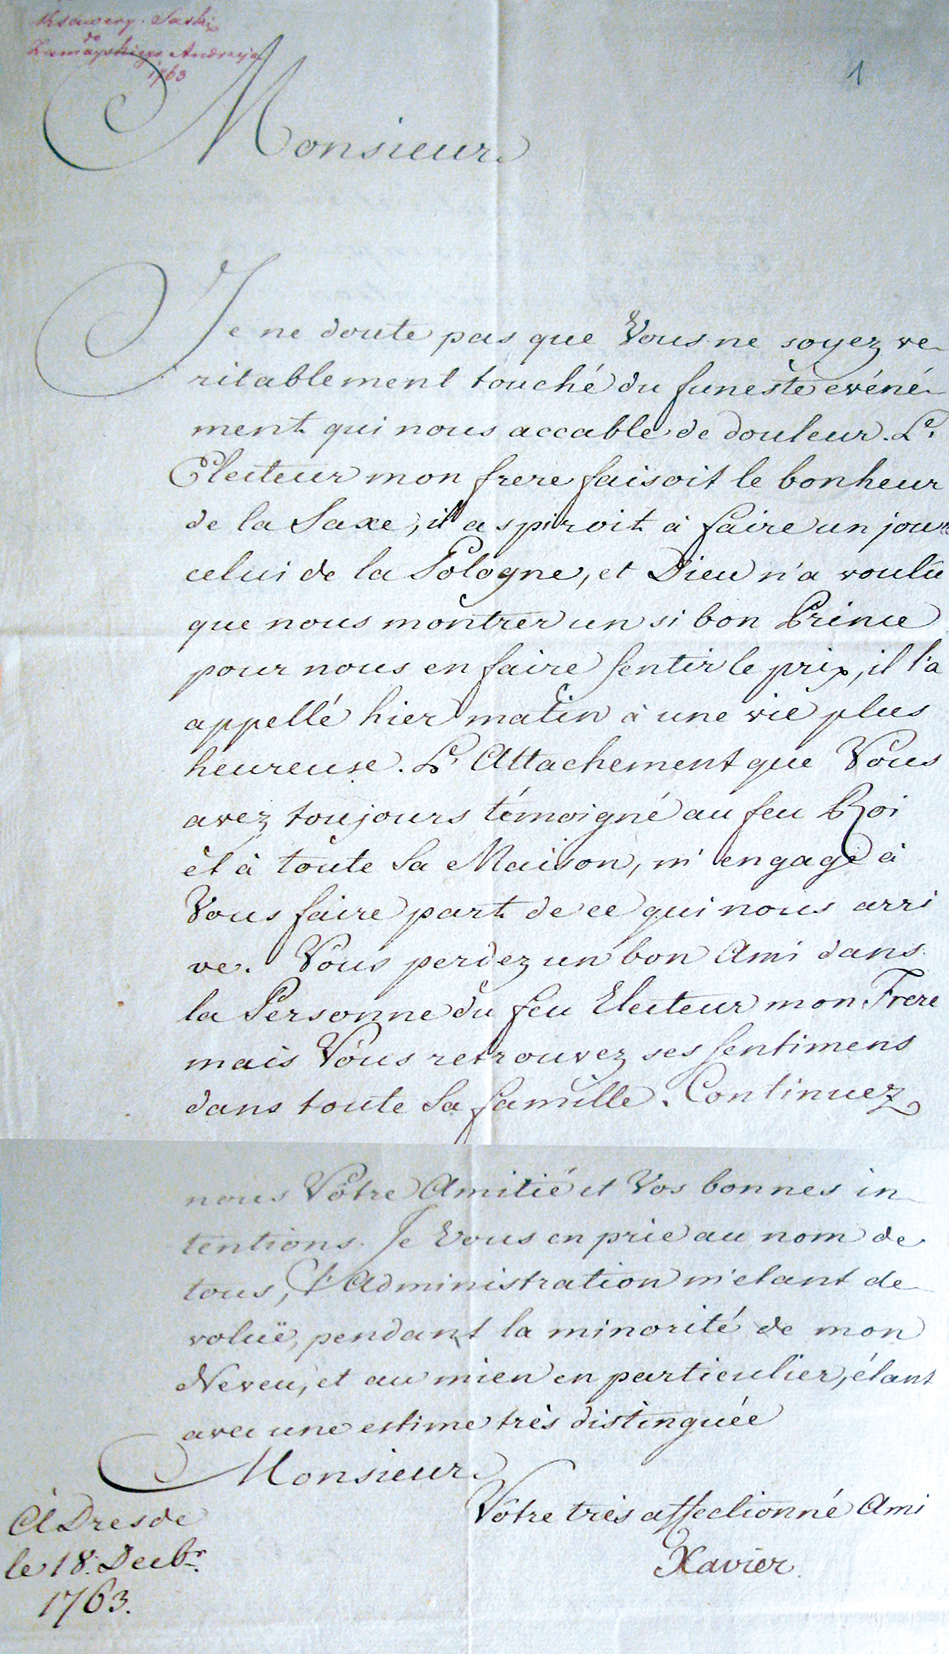 Ksawery Saski
do
Zamoyskiego Andrzeja
1763
1
Monsieur
Je ne doute pas que Vous ne soyez ve-
ritablement touché du funeste evéné-
ment qui nous accable de douleur. L'
Electeur mon frere faisoit le bonheur
de la Saxe, il aspiroit à faire un jour
celui de la Pologne, et Dieu n'a voulû
que nous montrer un si bon Prince
pour nous en faire sentir le prix, il l'a
appellé hier matin à une vie plus
heureuse. L'Attachement que Vous
avez toujours témoigné au feu Roi
èt à toute Sa Maison, m'engage à
Vous faire part de ce qui nous arri
ve. Vous perdez un bon Ami dans
la Personne du feu Electeur mon Frere
mais Vous retrouvez ses sentimens
dans toute Sa famille. Continuez
nous Vôtre Amitié et Vos bonnes in-
tentions. Je Vous en prie au nom de
tous, l'Administration m'etant de-
voluë, pendant la minorité de mon
Neveu, et au mien en particulier, étant
avec une estime très distinguée
Monsieur
Vôtre très affectionné Ami
Xavier.
à Dresde
le 18. Decbr.
1763.